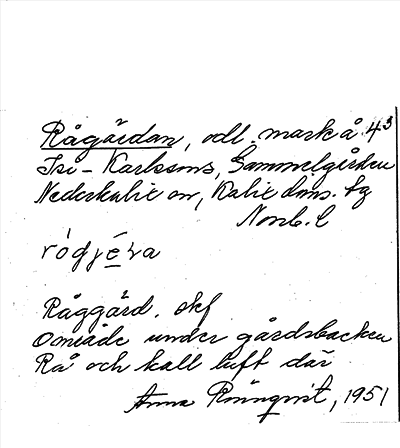 Rågärdan, odl. mark å 4³
Isi-Karlssons, Gammelgården
Nederkalix sn, Kalix dms. tg
Norrb. l
rógjéra
Råggård. skf
Område under gårdsbacken
Rå och kall luft där
Anna Rönnqvist, 1951